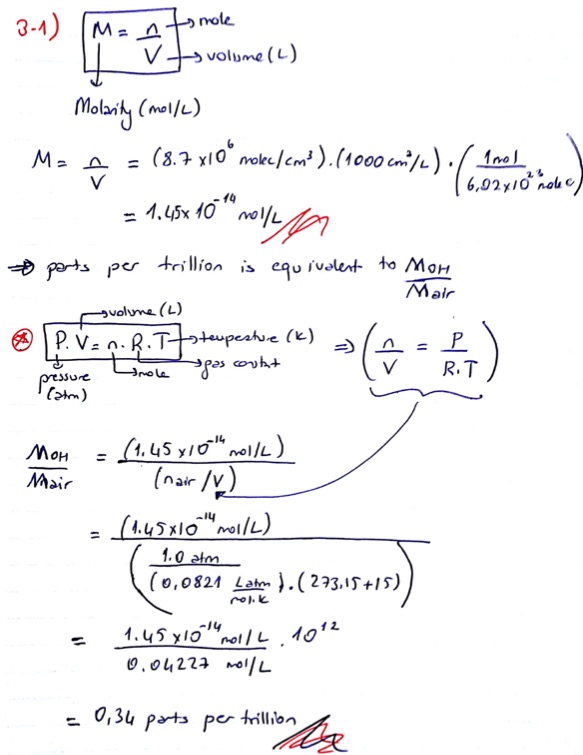 3-1) M = n/V → mole
→ volume (L)
Molarity (mol/L)
M = n/V = (8.7 x10^6 molec/cm³).(1000 cm³/L) . (1 mol / 6,02 x10^23 molec)
= 1.45x 10^-14 mol/L
⇒ parts per trillion is equivalent to MOH/Mair
→ volume (L)
P.V = n.R.T → temperature (K) ⇒ (n/V = P/R.T)
pressure (atm) → mole → gas constat
MOH/Mair = (1.45 x10^-14 mol/L) / (nair/V)
= (1.45x10^-14 mol/L) / (1.0 atm / (0,0821 Latm/mol.k).(273.15+15))
= 1.45 x10^-14 mol/L / 0.04227 mol/L . 10^12
= 0,34 parts per trillion